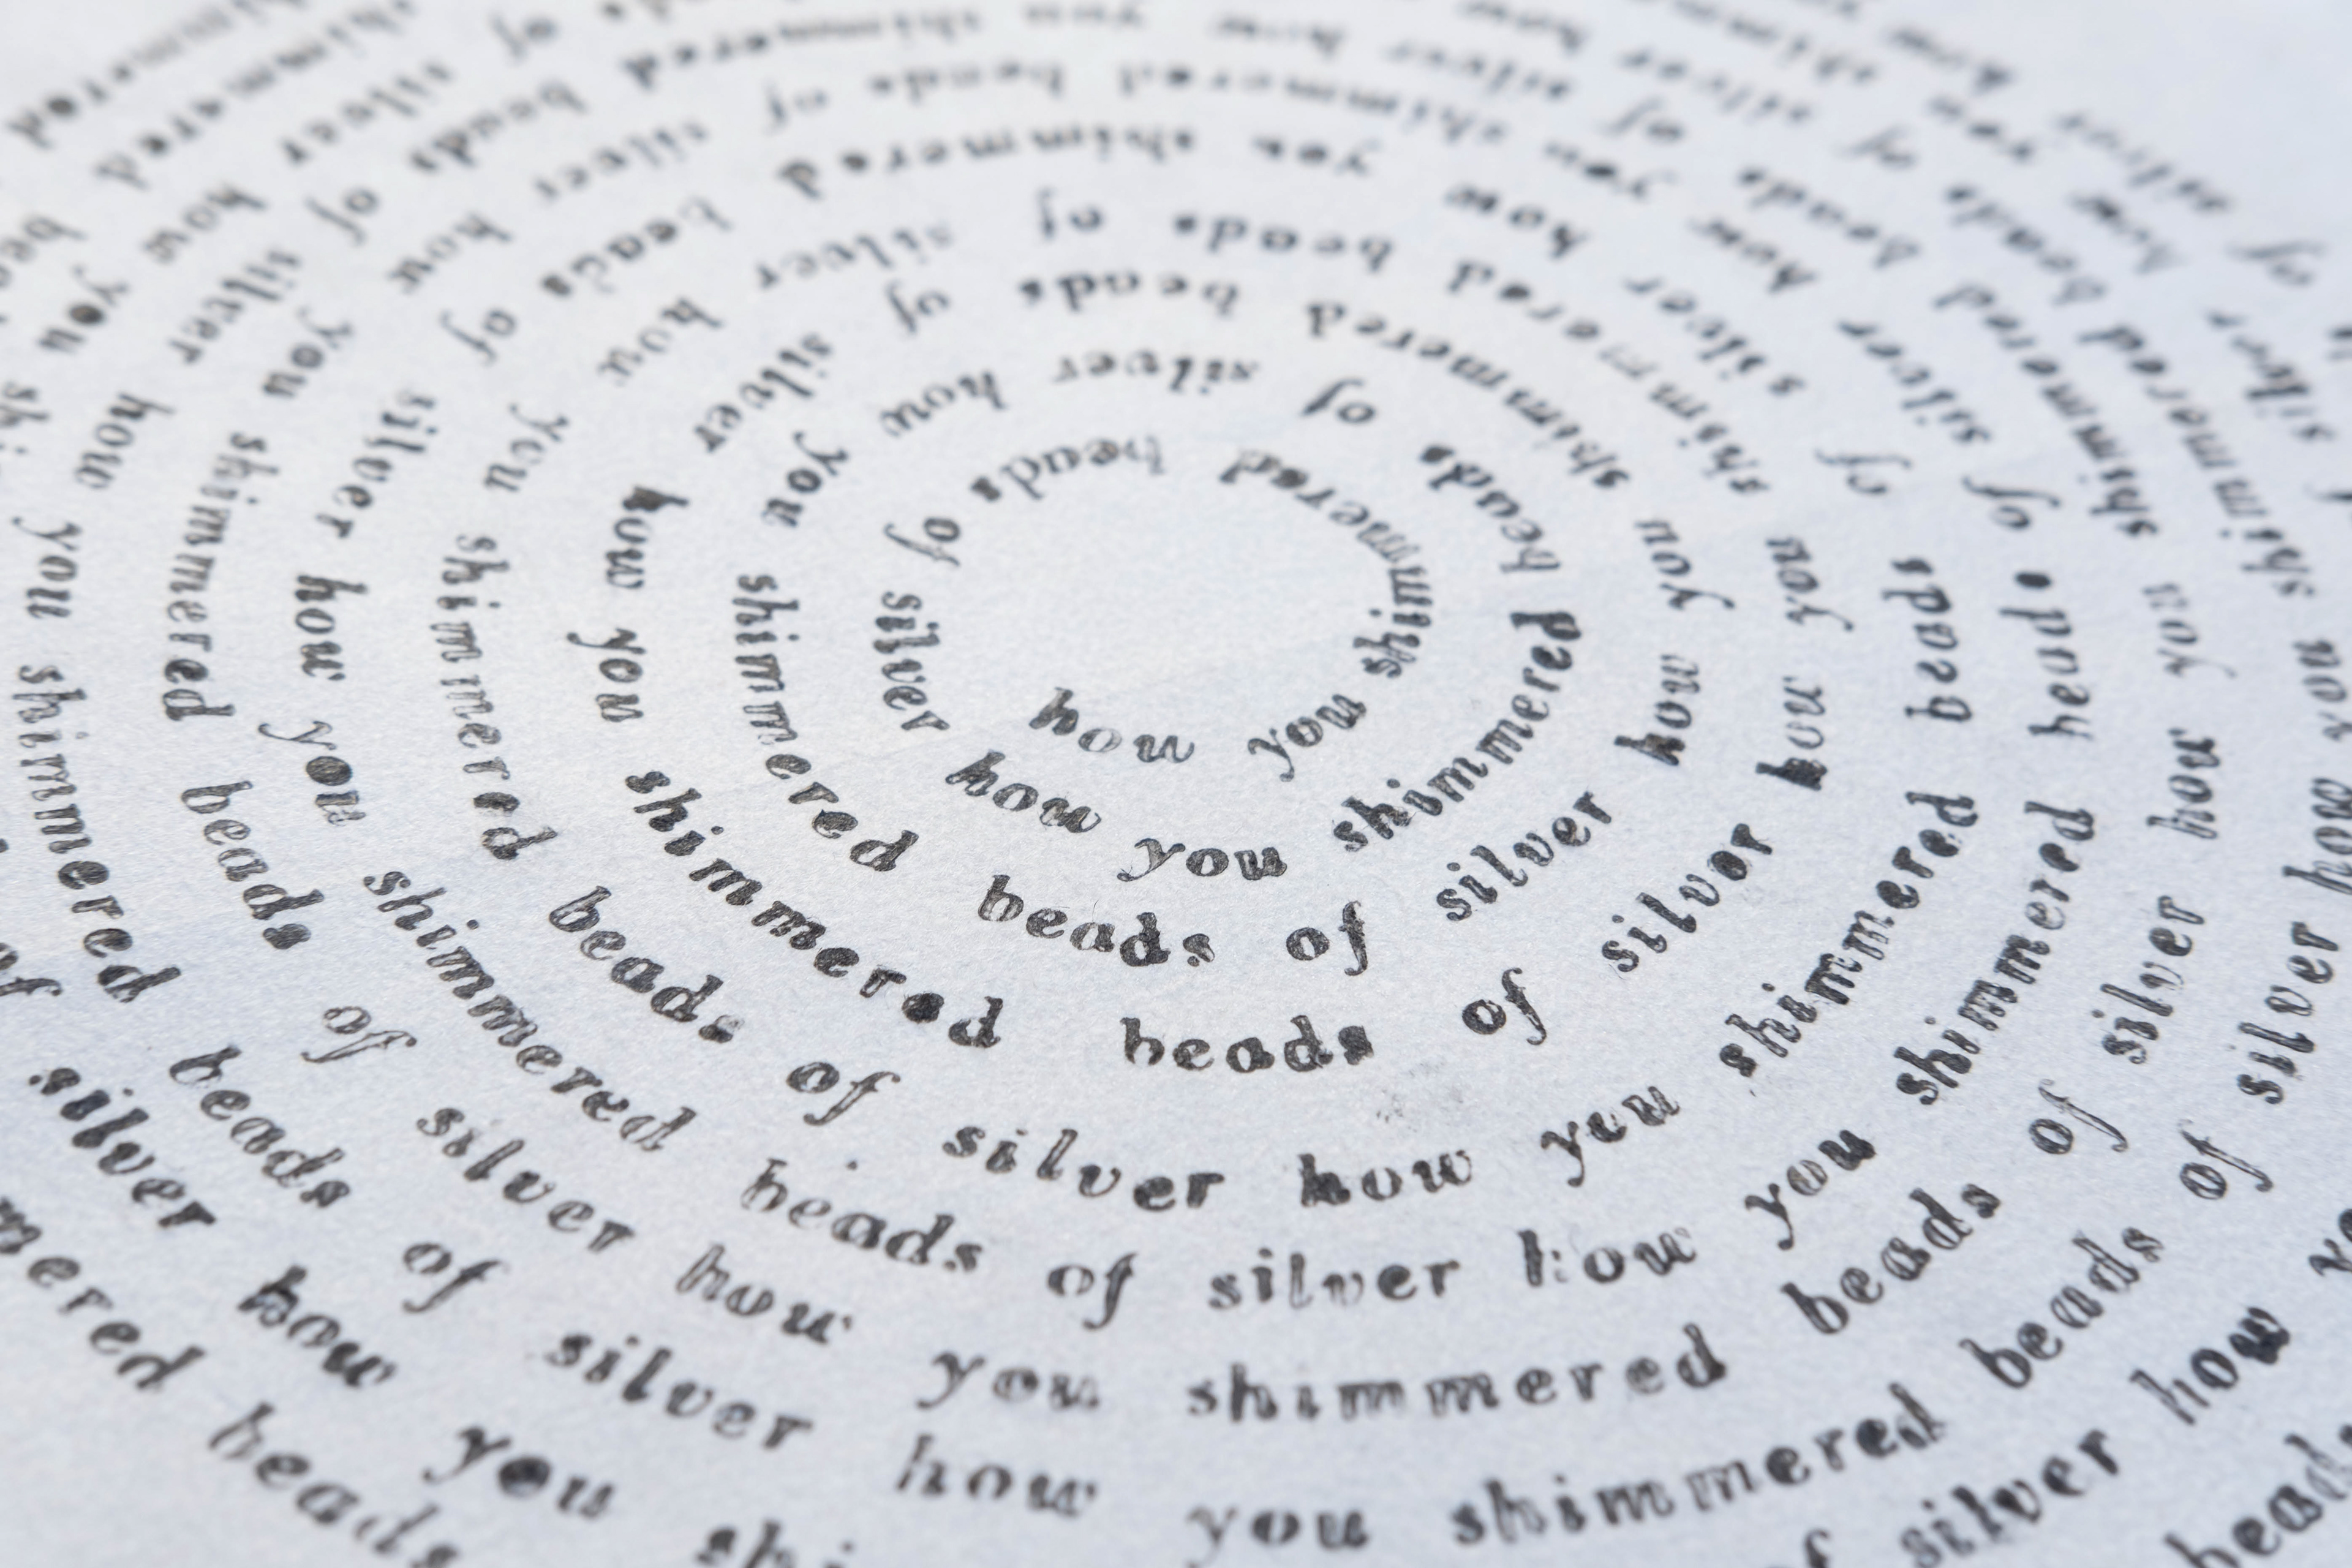 how you shimmered beads of silver
how you shimmered beads of silver how you
shimmered beads of silver how you shimmered beads of silver how you
shimmered beads of silver how you shimmered beads of silver how you
shimmered beads of silver how you shimmered beads of silver how you shimmered beads of silver how you
shimmered beads of silver how you shimmered beads of silver how you shimmered beads of silver how you
shimmered beads of silver how you shimmered beads of silver how you shimmered
how you shimmered beads of silver how you shimmered beads of silver how you shimmered
of silver how you
beads of silver how
mered beads